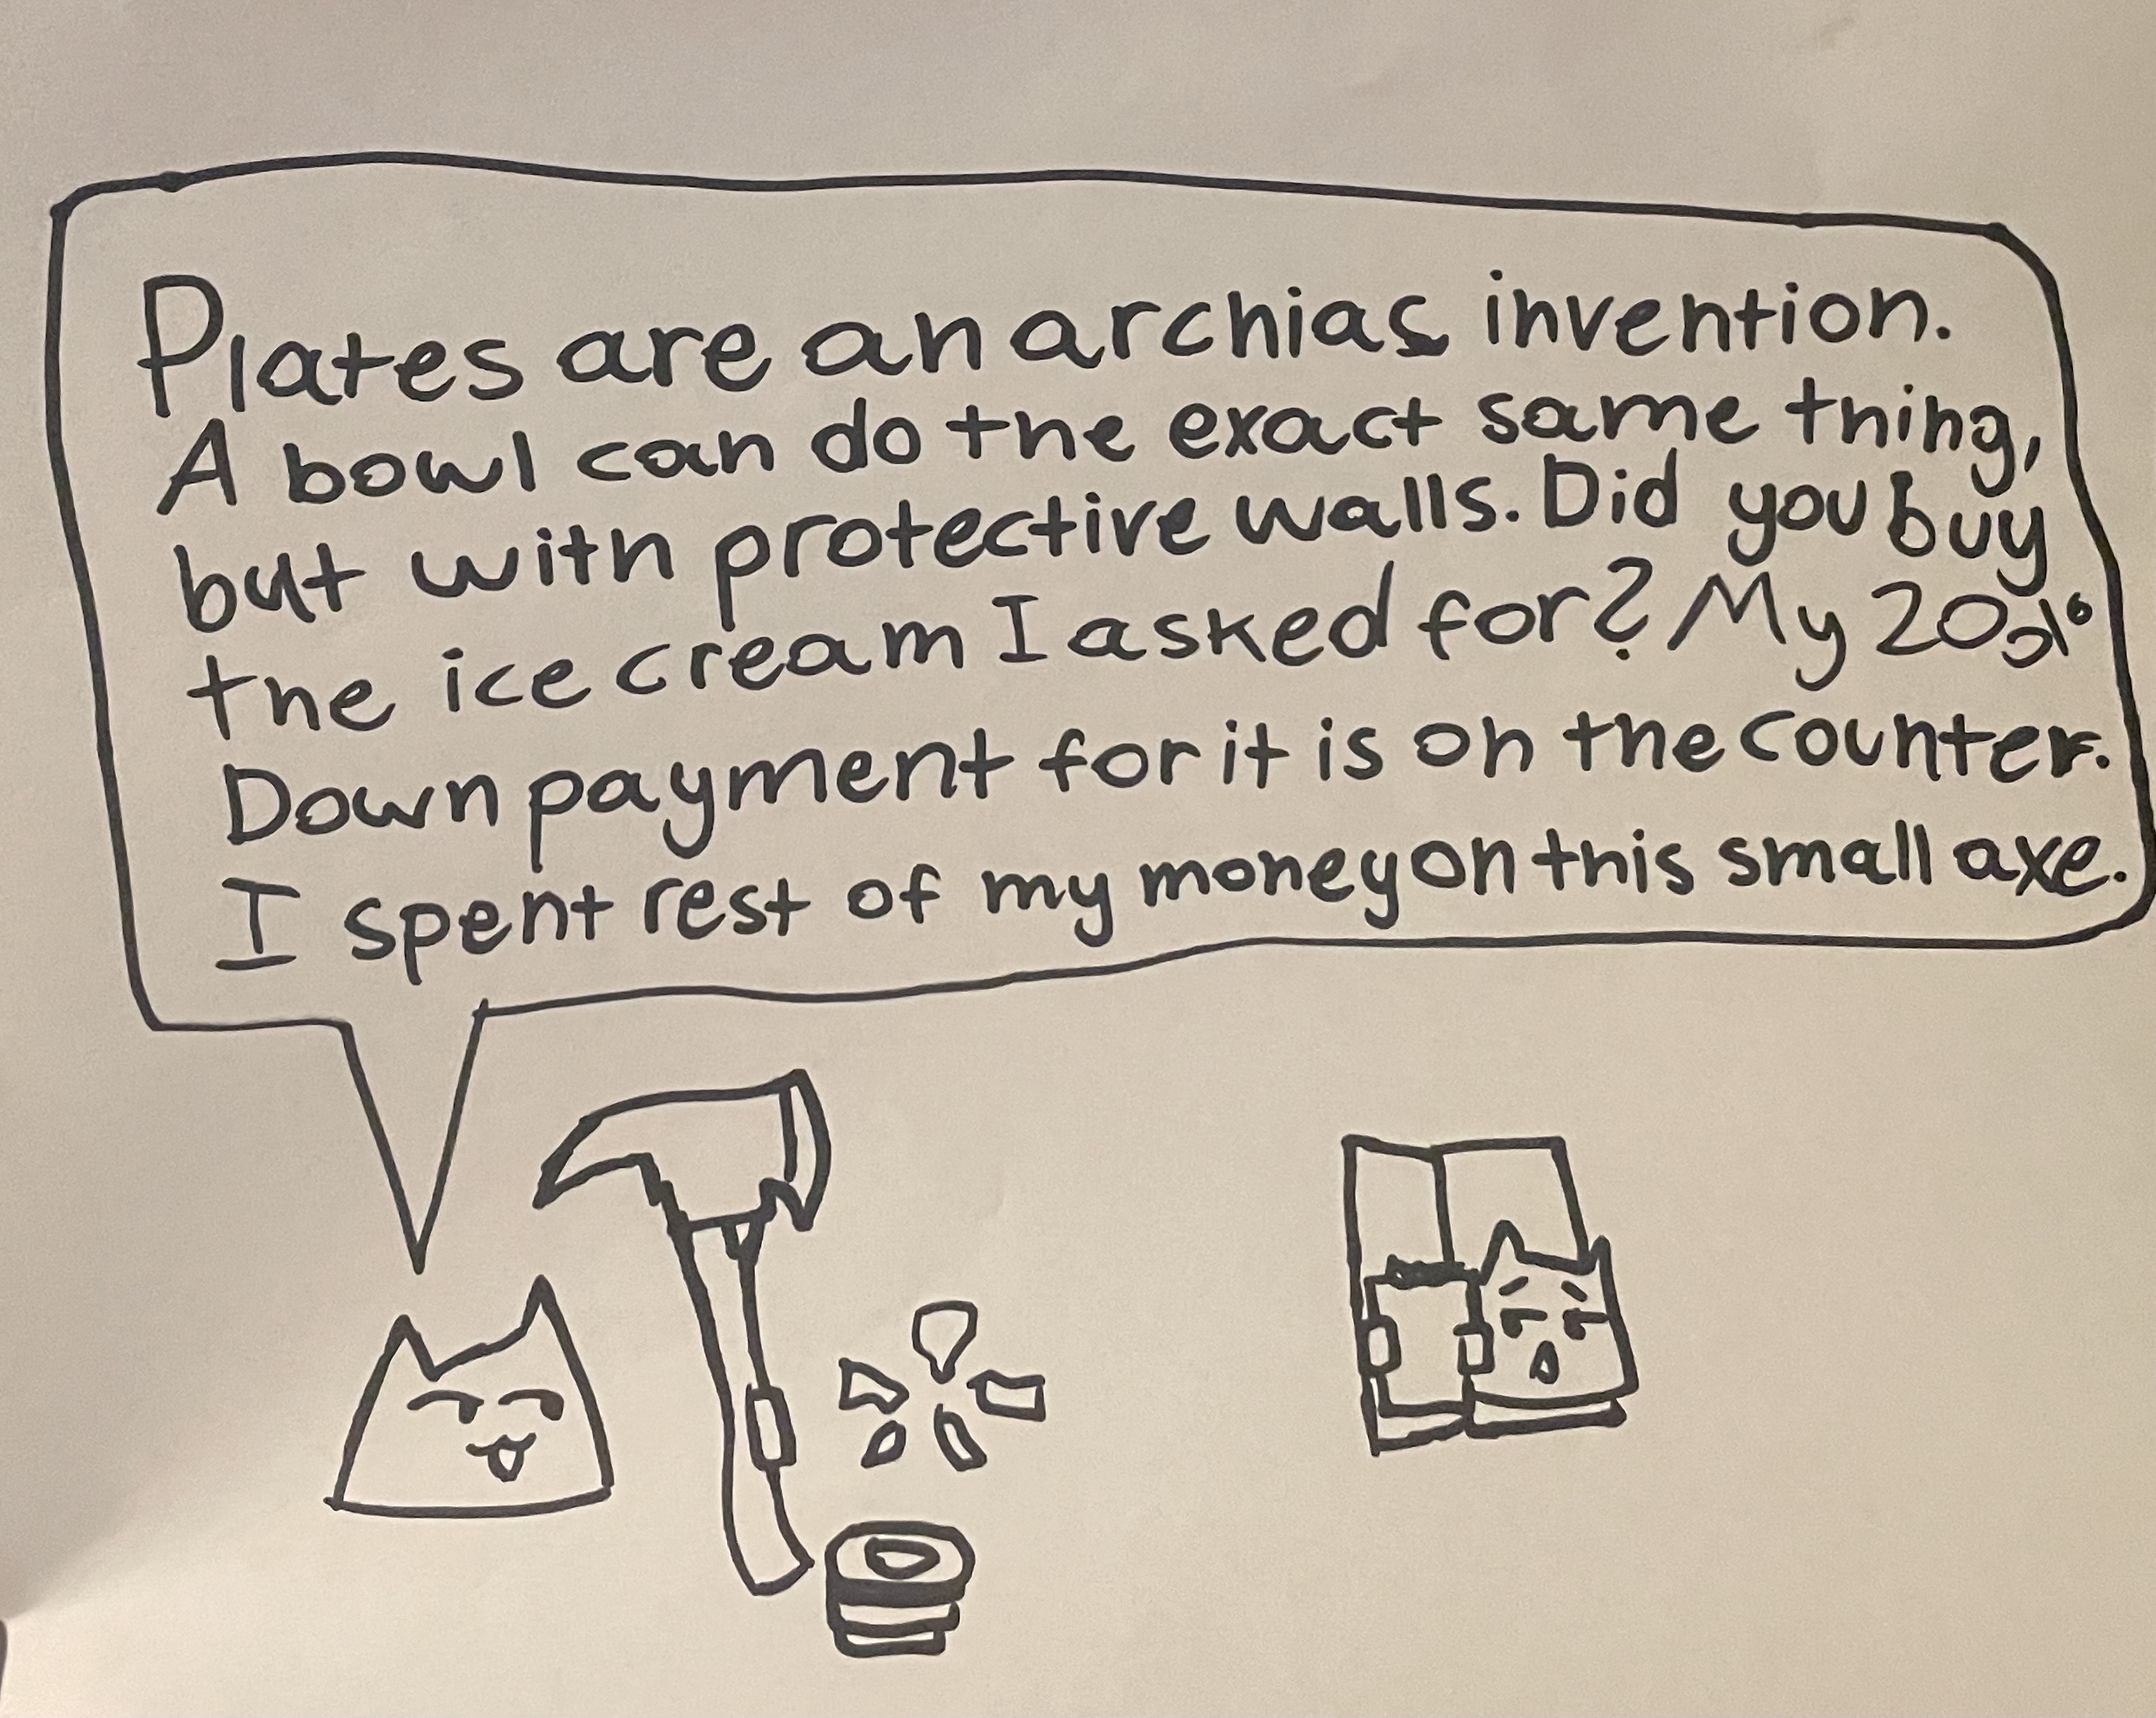 Plates are an archias invention.
A bowl can do the exact same thing,
but with protective walls. Did you buy
the ice cream I asked for? My 20%
Down payment for it is on the counter.
I spent rest of my money on this small axe.